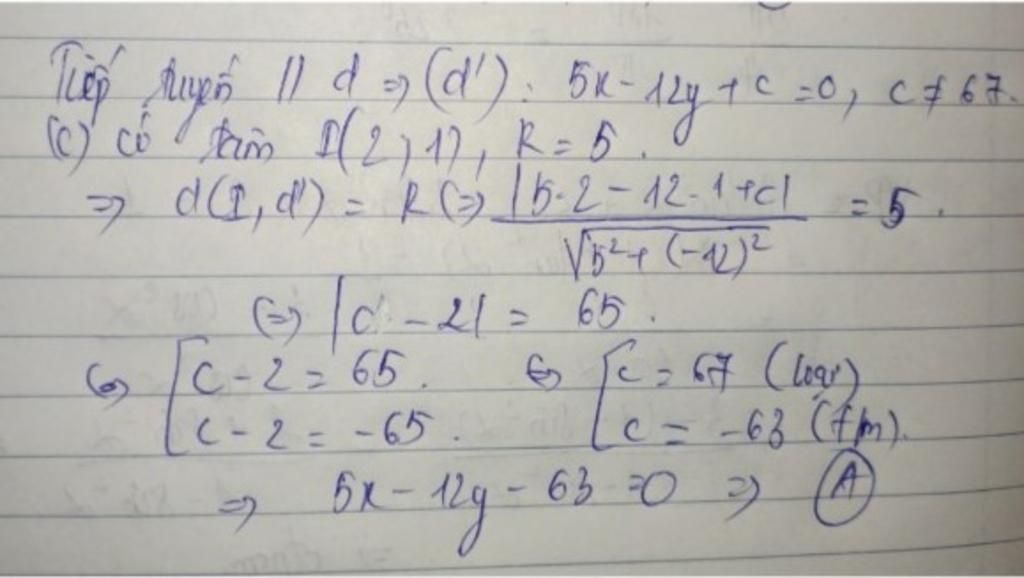 Tiếp tuyến // d => (d'): 5x - 12y + c = 0, c ≠ 67.
(C) có tâm I(2;1), R = 5.
=> d(I, d') = R <=> |5.2 - 12.1 + c| / √(5² + (-12)²) = 5.
<=> |c - 2| = 65.
<=> [c - 2 = 65. <=> [c = 67 (loại)
c - 2 = -65. c = -63 (t/m).
=> 5x - 12y - 63 = 0 => (A)